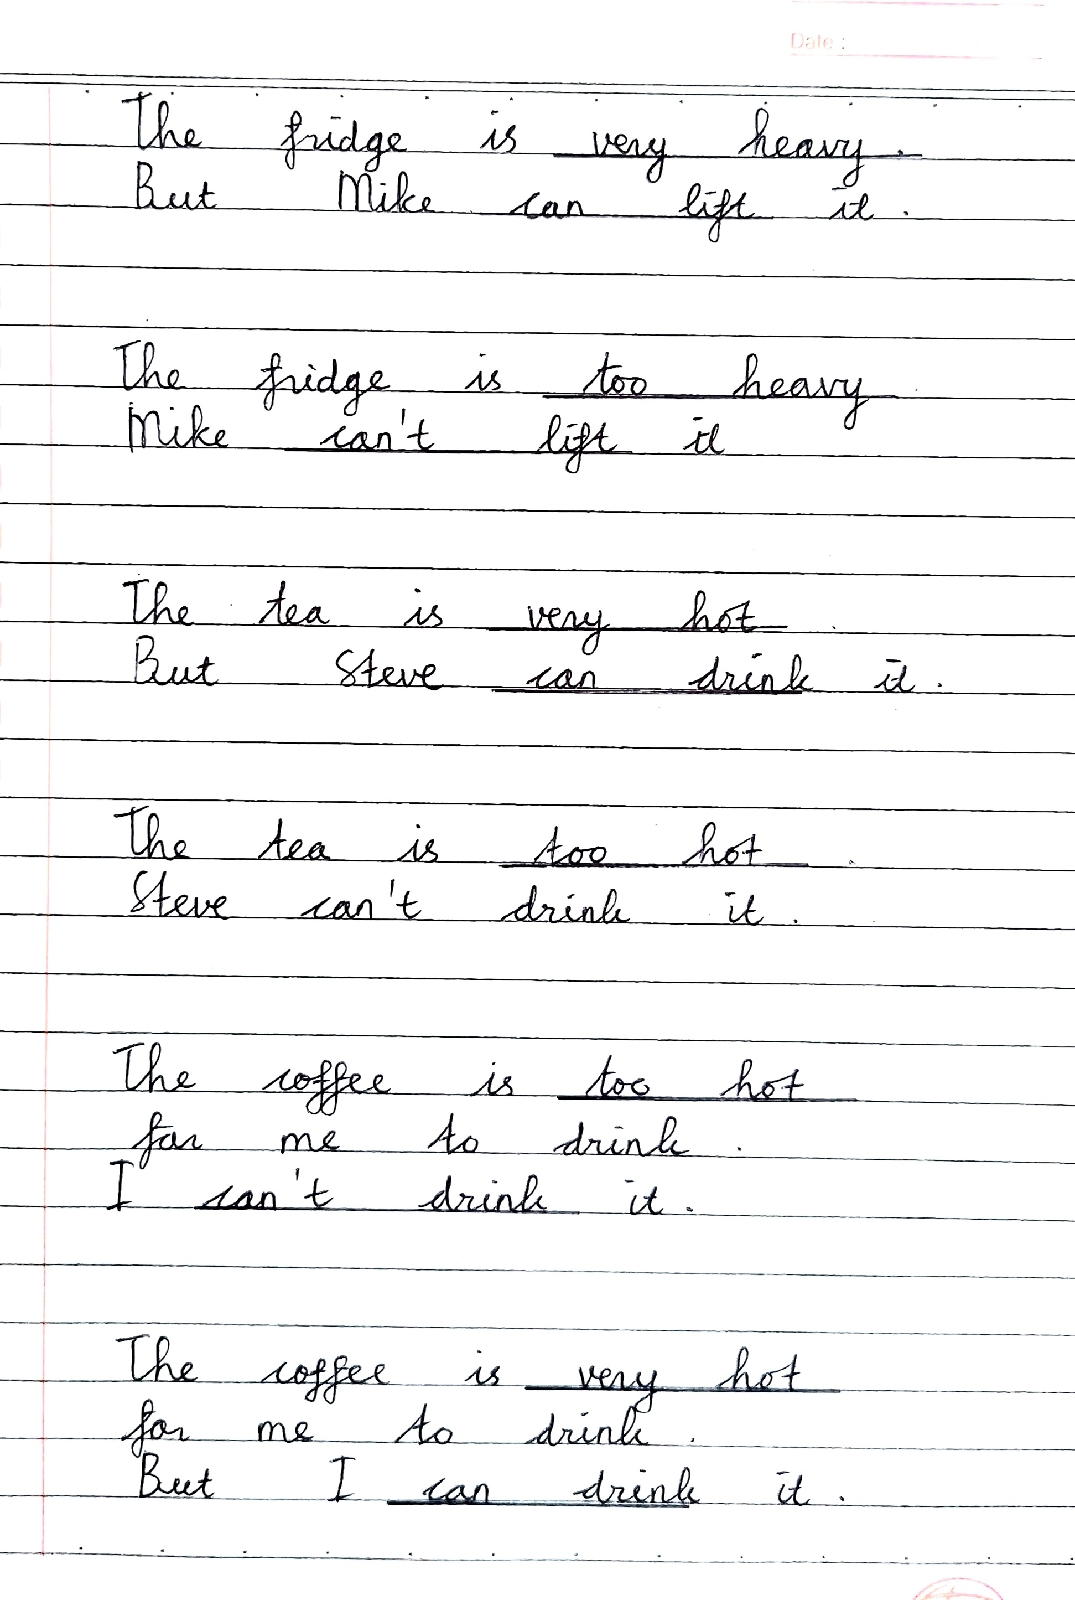 Date :
The fridge is very heavy.
But Mike can lift it.
The fridge is too heavy
Mike can't lift it
The tea is very hot
But Steve can drink it.
The tea is too hot.
Steve can't drink it.
The coffee is too hot
for me to drink.
I can't drink it.
The coffee is very hot
for me to drink.
But I can drink it.